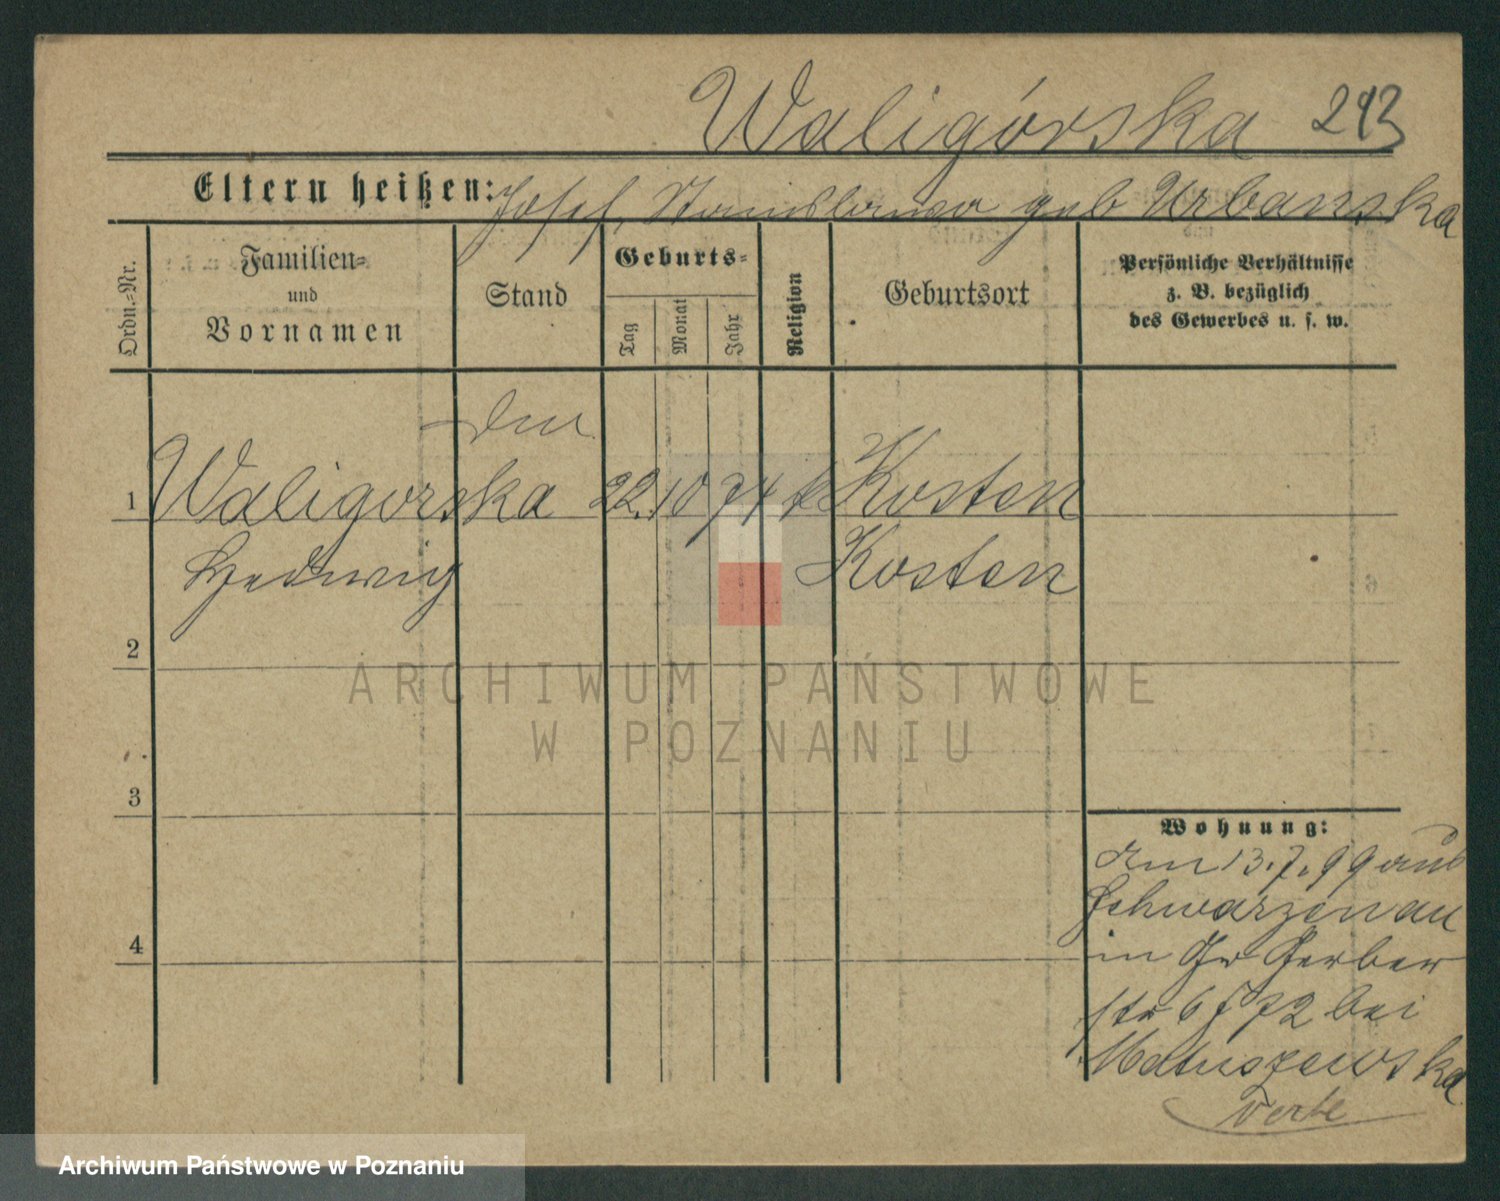 Waligórska 293
Eltern heißen: Josef, Stanislawa geb Urbanska
Ordn.-Nr.
Familien-
und
Vornamen
Stand
Geburts-
Tag
Monat
Jahr
Religion
Geburtsort
Persönliche Verhältnisse
z. B. bezüglich
des Gewerbes u. s. w.
1 Waligorska 22. 10 74 k Kosten
Hedwig Kosten
2
3
4
Wohnung:
Am 13.7.99 aus
Schwarzenau
in Gr Gerber
str 6 J 72 bei
Matuszewska
verte
ARCHIWUM PAŃSTWOWE
W POZNANIU
Archiwum Państwowe w Poznaniu